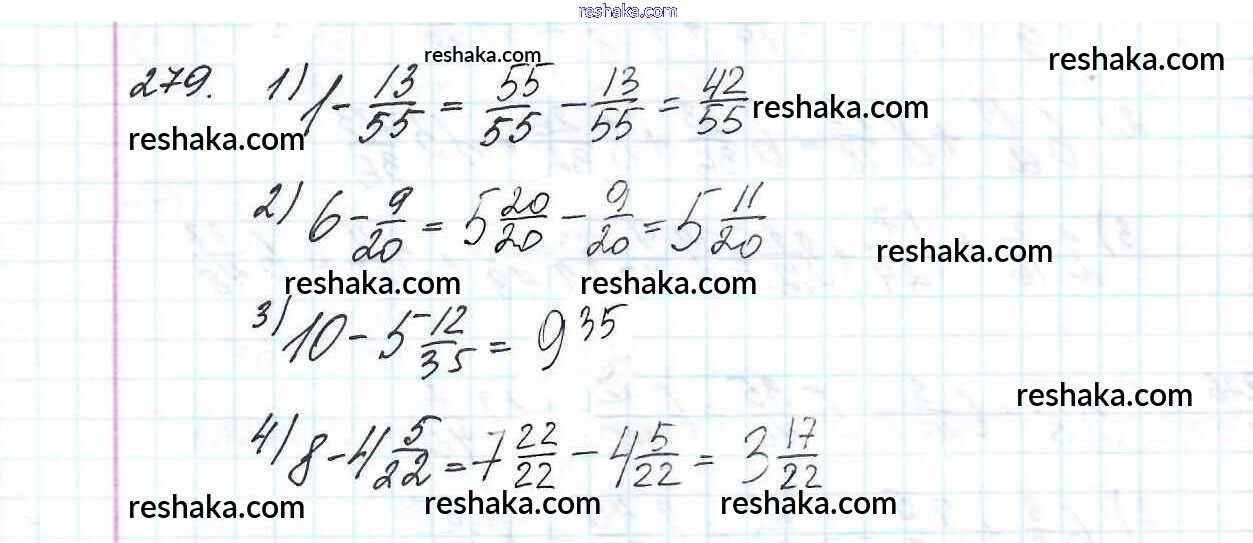 reshaka.com
reshaka.com
reshaka.com
279. 1) 1 - 13/55 = 55/55 - 13/55 = 42/55
reshaka.com
reshaka.com
2) 6 - 9/20 = 5 20/20 - 9/20 = 5 11/20
reshaka.com
reshaka.com
reshaka.com
3) 10 - 5 12/35 = 9 35
reshaka.com
4) 8 - 4 5/22 = 7 22/22 - 4 5/22 = 3 17/22
reshaka.com
reshaka.com
reshaka.com